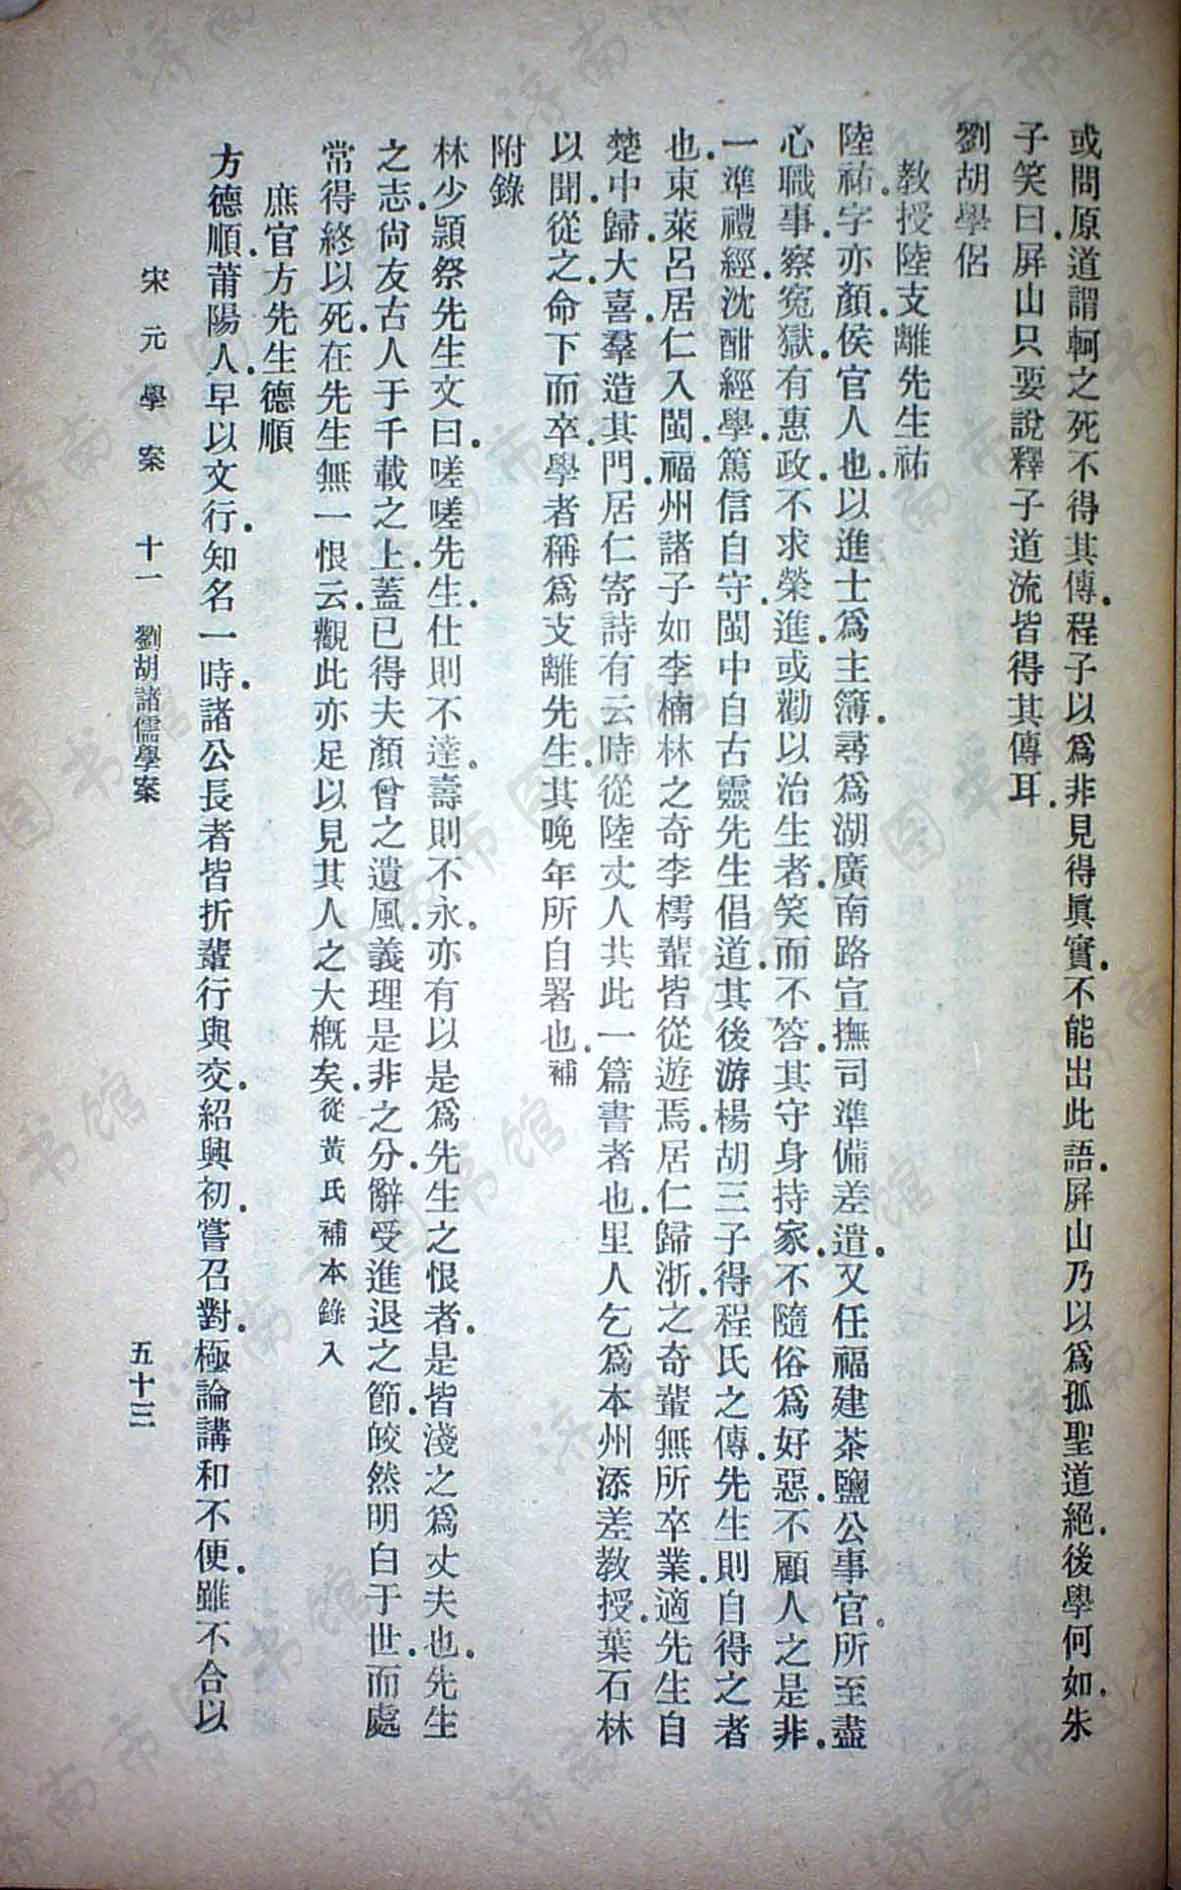 或問原道謂軻之死不得其傳.程子以爲非見得眞實.不能出此語.屏山乃以爲孤聖道絕.後學何如.朱
子笑曰.屏山只要說釋子道流皆得其傳耳.
劉胡學侶
教授陸支離先生祐
陸祐.字亦顏.侯官人也.以進士爲主簿.尋爲湖廣南路宣撫司準備差遣.又任福建茶鹽公事官.所至盡
心職事.察冤獄.有惠政.不求榮進.或勸以治生者.笑而不答.其守身持家.不隨俗爲好惡.不顧人之是非.
一準禮經.沈酣經學.篤信自守.閩中自古靈先生倡道.其後游楊胡三子得程氏之傳.先生則自得之者
也.東萊呂居仁入閩.福州諸子如李楠林之奇李樗輩皆從遊焉.居仁歸浙.之奇輩無所卒業.適先生自
楚中歸.大喜.羣造其門.居仁寄詩有云.時從陸丈人.共此一篇書者也.里人乞爲本州添差教授.葉石林
以聞.從之.命下而卒.學者稱爲支離先生.其晚年所自署也.補
附錄
林少穎祭先生文曰.嗟嗟先生.仕則不達.壽則不永.亦有以是爲先生之恨者.是皆淺之爲丈夫也.先生
之志.尙友古人于千載之上.蓋已得夫顏曾之遺風.義理是非之分.辭受進退之節.皎然明白于世.而處
常得終以死.在先生無一恨云.觀此亦足以見其人之大概矣.從黃氏補本錄入
庶官方先生德順
方德順.莆陽人.早以文行知名一時.諸公長者皆折輩行與交.紹興初.嘗召對.極論講和不便.雖不合以
宋元學案 十一 劉胡諸儒學案 五十三